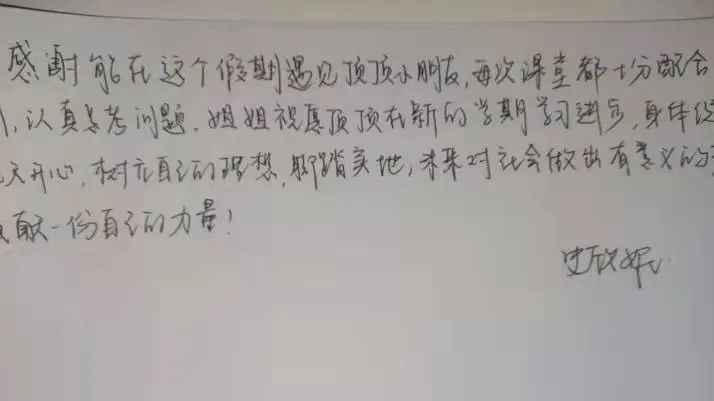 感谢能在这个假期遇见顶顶小朋友,每次课堂都十分配合
认真思考问题.姐姐祝愿顶顶在新的学期学习进步,身体
天开心,树立自己的理想,脚踏实地,未来对社会做出有意义的
献一份自己的力量!
史欣